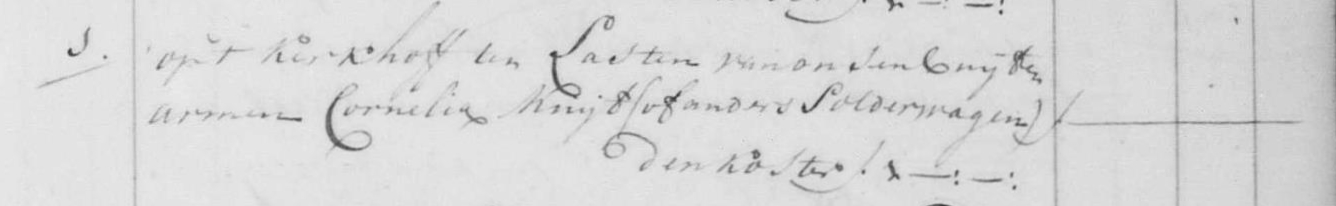 5. op't kerkhoff ten Lasten van onsen buijten
armen Cornelia Knijf (of anders Solderwagen) f
den koster f x —:—: